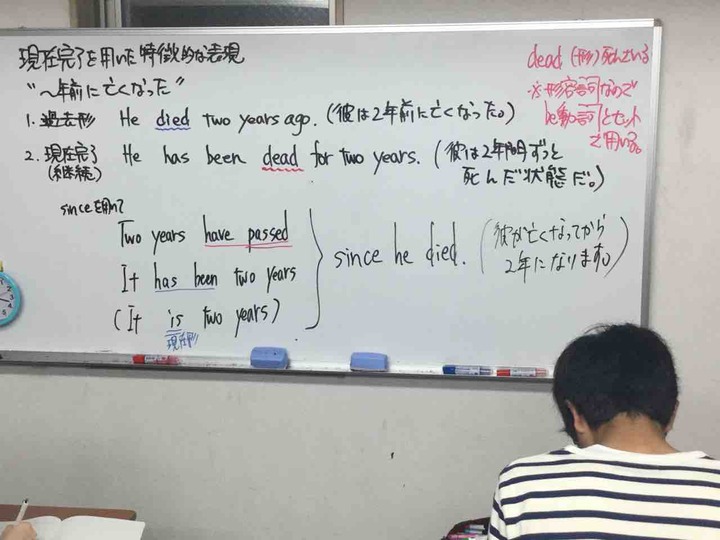 現在完了を用いた特徴的な表現
"〜年前に亡くなった"
1. 過去形 He died two years ago. (彼は2年前に亡くなった。)
2. 現在完了 He has been dead for two years. (彼は2年間ずっと
(継続) 死んだ状態だ。)
since を用いて
Two years have passed
It has been two years
(It is two years)
現在形
since he died. (彼が亡くなってから
2年になります。)
dead (形) 死んでいる
※形容詞なので
be動詞とセット
で用いる。